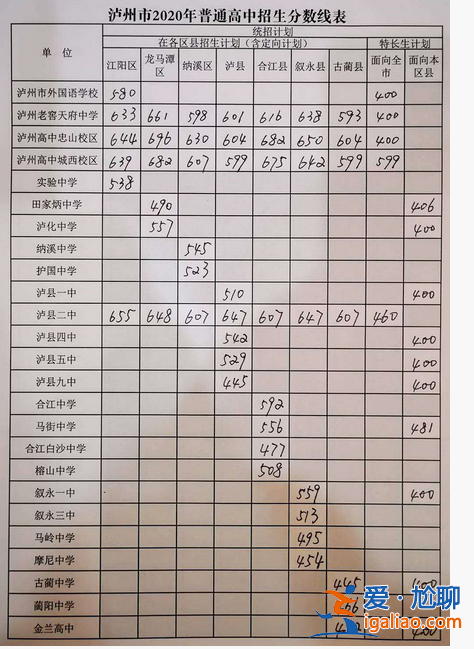 泸州市2020年普通高中招生分数线表
单 位
统招计划
在各区县招生计划（含定向计划）
特长生计划
江阳区 龙马潭区 纳溪区 泸县 合江县 叙永县 古蔺县 面向全市 面向本区县
泸州市外国语学校 580 400
泸州老窖天府中学 633 661 598 601 616 638 593 400
泸州高中忠山校区 644 696 630 604 682 650 604 400
泸州高中城西校区 639 682 607 599 675 642 599 599
实验中学 538
田家炳中学 490 406
泸化中学 557 400
纳溪中学 545
护国中学 523
泸县一中 510 400
泸县二中 655 648 607 647 607 647 607 460
泸县四中 542 400
泸县五中 529 400
泸县九中 445 400
合江中学 592
马街中学 556 481
合江白沙中学 477
榕山中学 508
叙永一中 559 400
叙永三中 513
马岭中学 495
摩尼中学 454
古蔺中学 445 400
蔺阳中学
金兰高中 400
爱·尬聊
igaliao.com